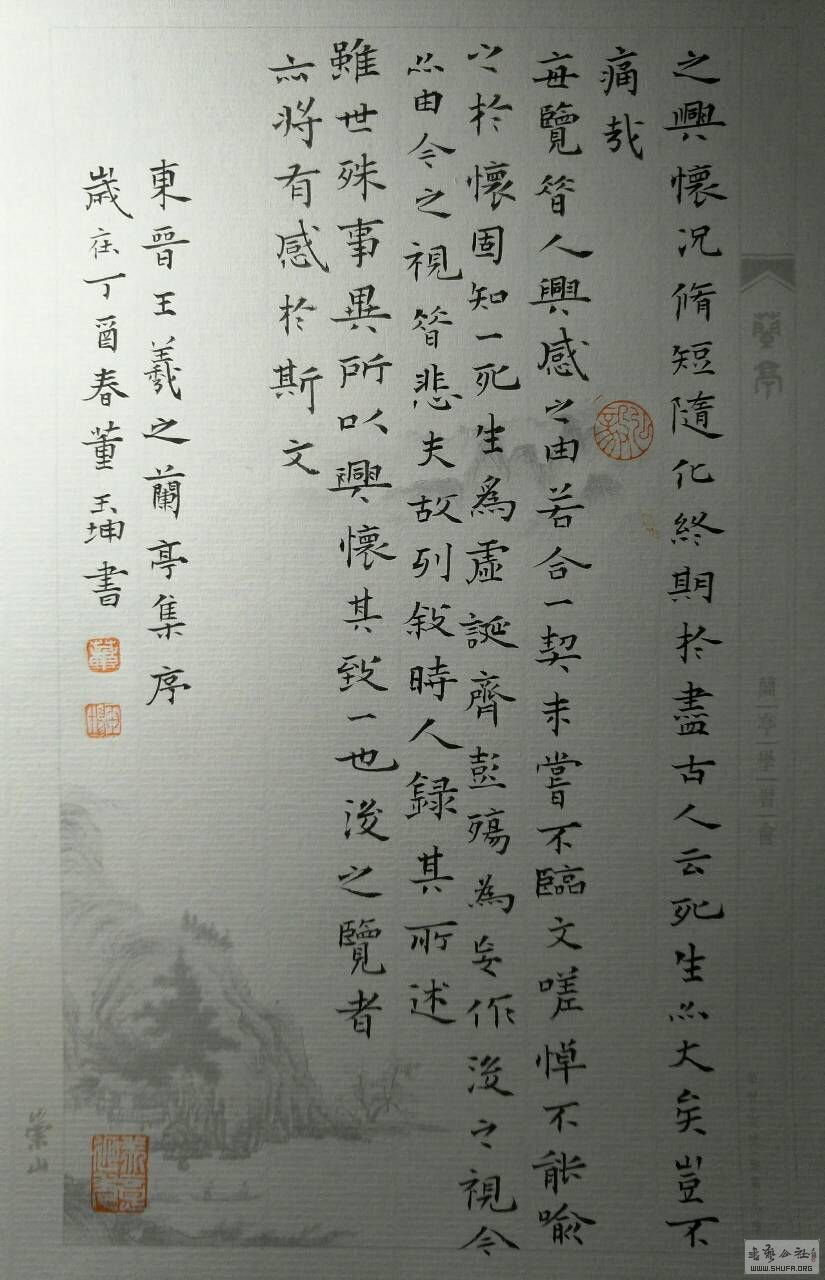 之興懷況脩短隨化終期於盡古人云死生亦大矣豈不
痛哉
每覽昝人興感之由若合一契未嘗不臨文嗟悼不能喻
之於懷固知一死生為虛誕齊彭殤為妄作後之視今
亦由今之視昝悲夫故列敘時人錄其所述
雖世殊事異所以興懷其致一也後之覽者
亦將有感於斯文
東晉王羲之蘭亭集序
歲在丁酉春董玉坤書
蘭亭
蘭亭學習會
WWW.SHUFA.ORG